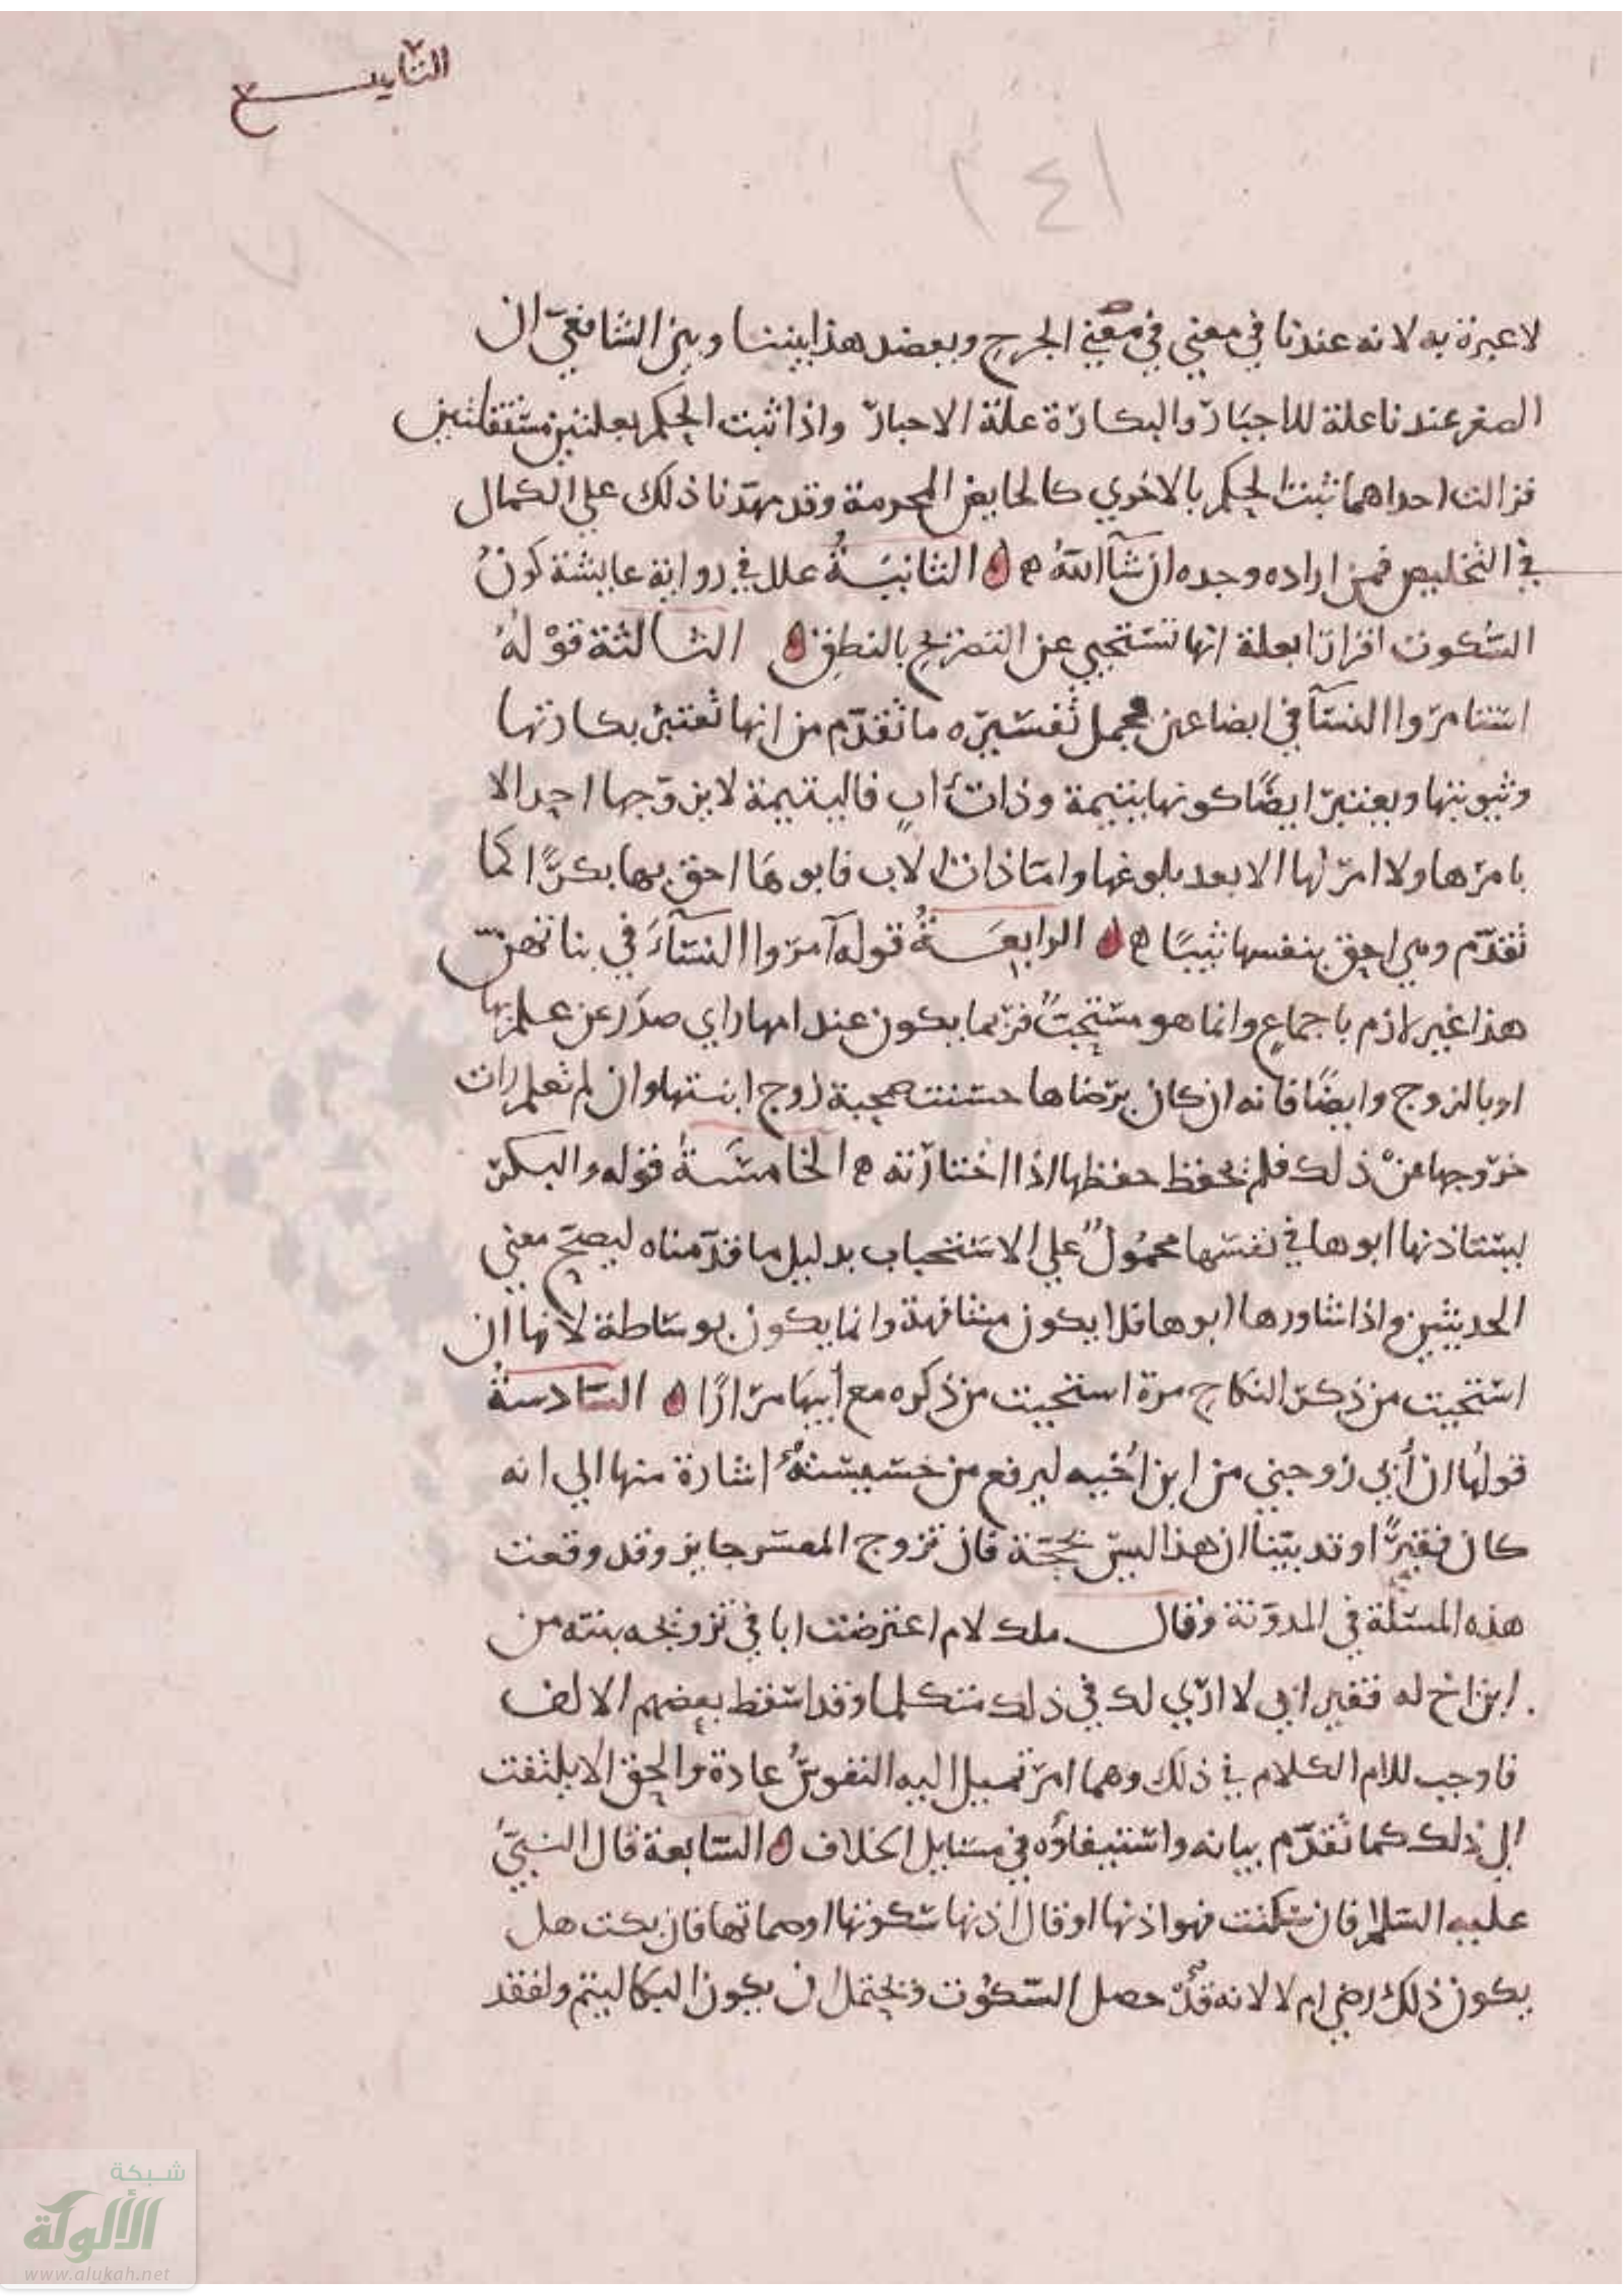 التاسع
٣٤١
٧١
لا عبرة به لانه عندنا في معني في معني الجرح وبعضد هذا بيننا وبين الشافعي ان
الصغر عندنا علة للاجبار والبكارة علة الاجبار واذا ثبت الحكم بعلتين مستقلتين
فزالت احداهما ثبت الحكم بالاخري كالحايض المحرمة وقد مهدنا ذلك علي الكمال
في التخليص فمن اراده وجده ان شآ الله ه الثانية علل في رواية عايشة كون
السكوت اقرارا بعلة انها تستحيي عن التصريح بالنطق الثالثة قوله
استامروا النسآ في ابضاعهن مجمل تفسيره ما تقدم من انها تعتبر بكارتها
وثيوبتها ويعتبر ايضا كونها يتيمة وذات اب فاليتيمة لا يزوجها احد الا
بامرها ولا امر لها الا بعد بلوغها واما ذات الاب فابوها احق بها بكرا كما
تقدم وهي احق بنفسها ثيبا ه الرابعة قوله آمروا النسآء في بناتهن
هذا غير لازم باجماع وانما هو مستحب فربما يكون عند امها راي صدر عن علم بها
او بالزوج وايضا فانه ان كان برضاها حسنت صحبة زوج ابنتها وان لم تعلم رات
خروجها عن ذلك فلم تحفظ حفظها اذا اختارته ه الخامسة قوله والبكر
يستاذنها ابوها في نفسها محمول علي الاستحباب بدليل ما قدمناه ليصح معني
الحديثين واذا شاورها ابوها فلا يكون مشافهة وانما يكون بوساطة لانها ان
استحيت من ذكر النكاح مرة استحيت من ذكره مع أبيها مرارا السادسة
قولها ان أبي زوجني من ابن أخيه ليرفع من خسيسته اشارة منها الي انه
كان فقيرا وقد بينا ان هذا ليس بحجة فان تزوج المعسر جايز وقد وقعت
هذه المسئلة في المدونة وقال ملك لام اعترضت ابا في تزويجه بنته من
ابن اخ له فقير اني لا اري لك في ذلك متكلما وقد اسقط بعضهم الالف
فاوجب للام الكلام في ذلك وهما امر تميل اليه النفوس عادة والحق الا يلتفت
الي ذلك كما تقدم بيانه واستيفاؤه في مسايل الخلاف السابعة قال النبي
عليه السلام فان سكنت فهو اذنها او قال اذنها سكوتها او صماتها فان بكت هل
يكون ذلك رضي ام لا لانه قد حصل السكوت ويحتمل ان يكون البكا ليتم ولفقد
شبكة
الألوكة
www.alukah.net